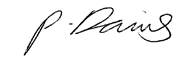 P. Davis